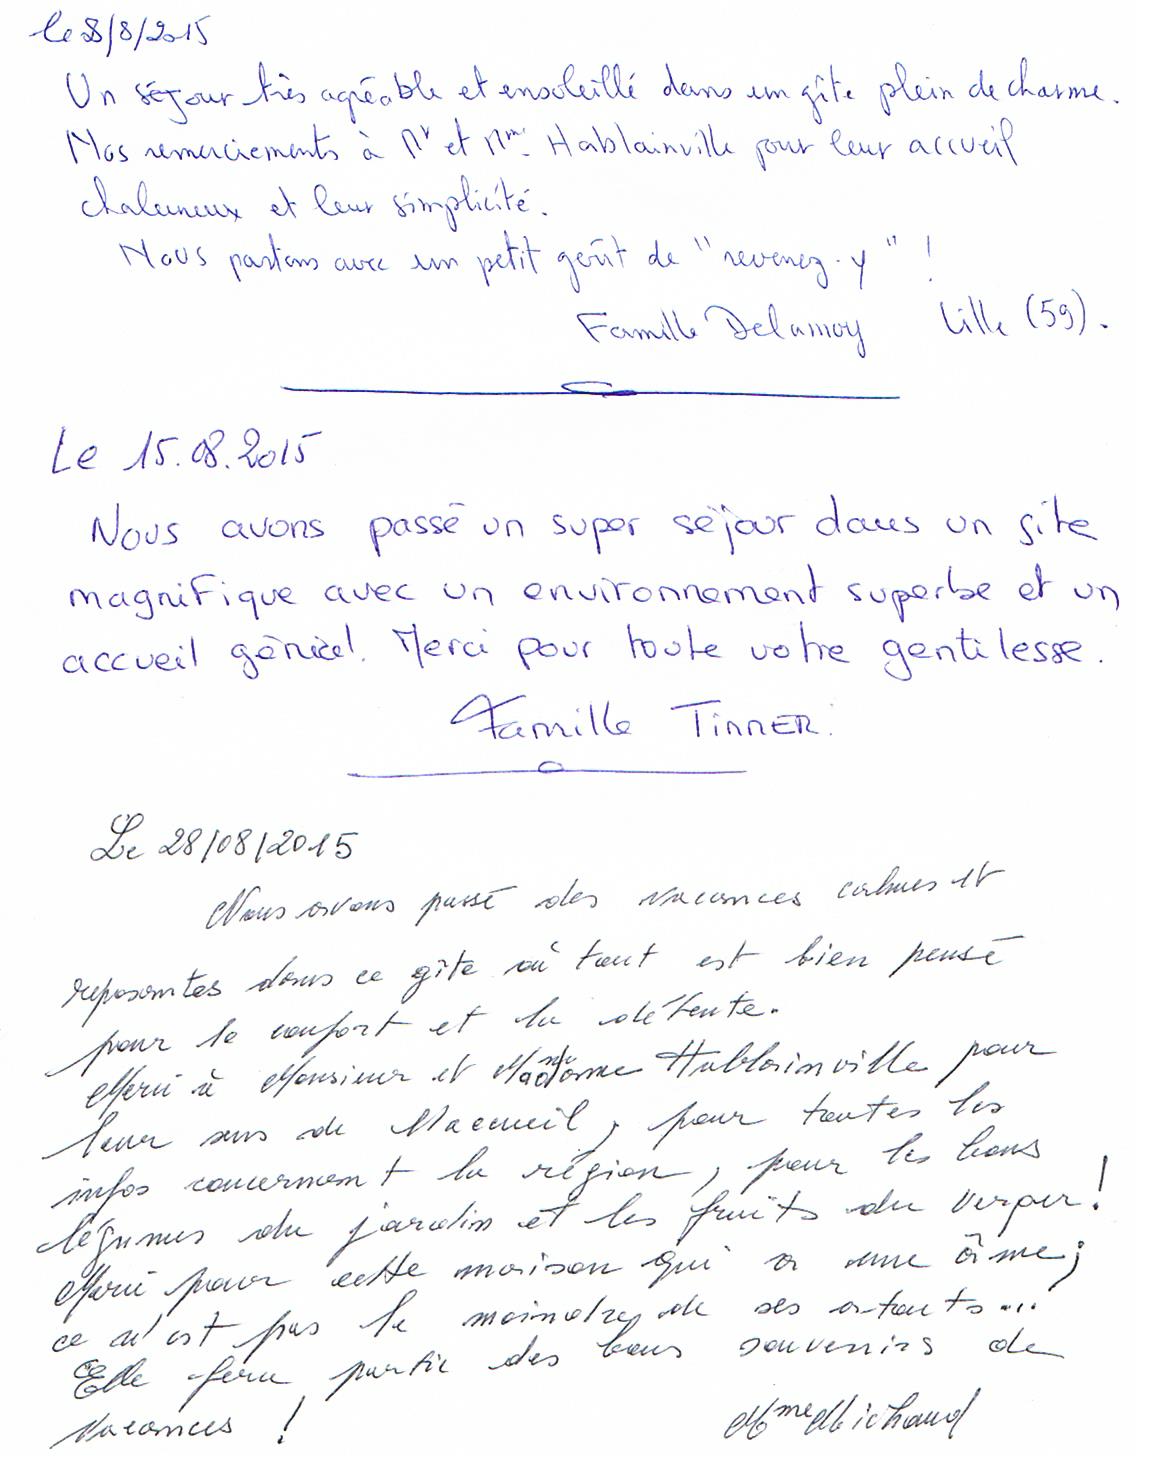 le 8/8/2015
Un séjour très agréable et ensoleillé dans un gîte plein de charme.
Nos remerciements à Mr et Mme Hablainville pour leur accueil
chaleureux et leur simplicité.
Nous partons avec un petit goût de "revenez-y" !
Famille Delannoy Lille (59).
Le 15.08.2015
Nous avons passé un super séjour dans un gîte
magnifique avec un environnement superbe et un
accueil génial. Merci pour toute votre gentilesse.
Famille TinnER.
Le 28/08/2015
Nous avons passé des vacances calmes et
reposantes dans ce gîte où tout est bien pensé
pour le confort et la détente.
Merci à Monsieur et Madame Hablainville pour
leur sens de l'accueil, pour toutes les
infos concernant la région, pour les bons
légumes du jardin et les fruits du verger !
Merci pour cette maison qui a une âme ;
ce n'est pas le moindre de ses atouts...
Elle fera partie des bons souvenirs de
vacances !
Mme Michaud